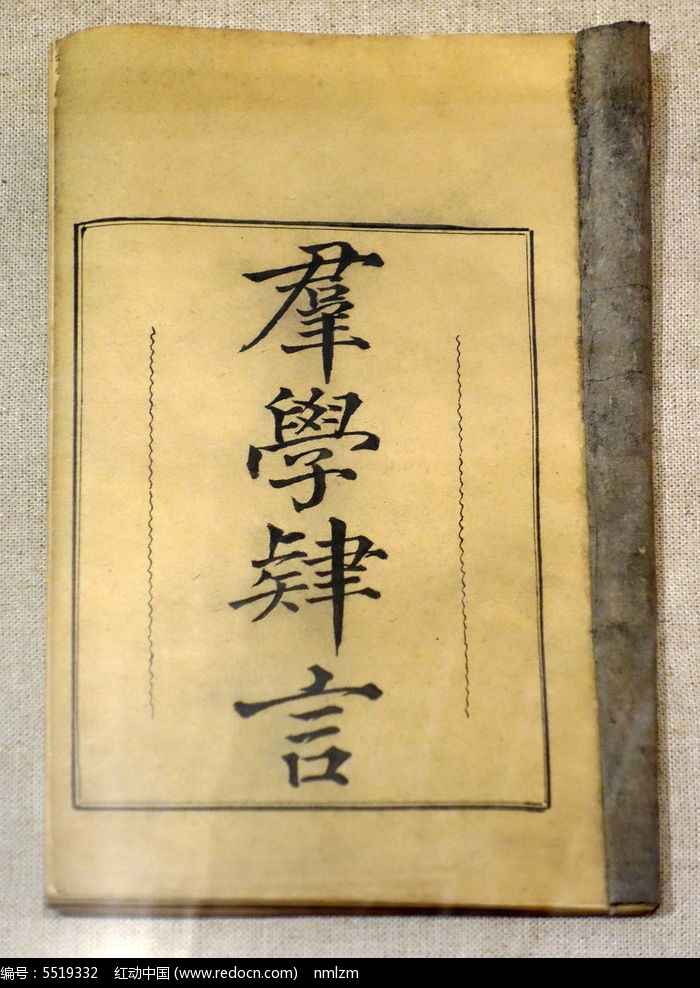 羣學肄言
编号：5519332 红动中国 (www.redocn.com) nmlzm